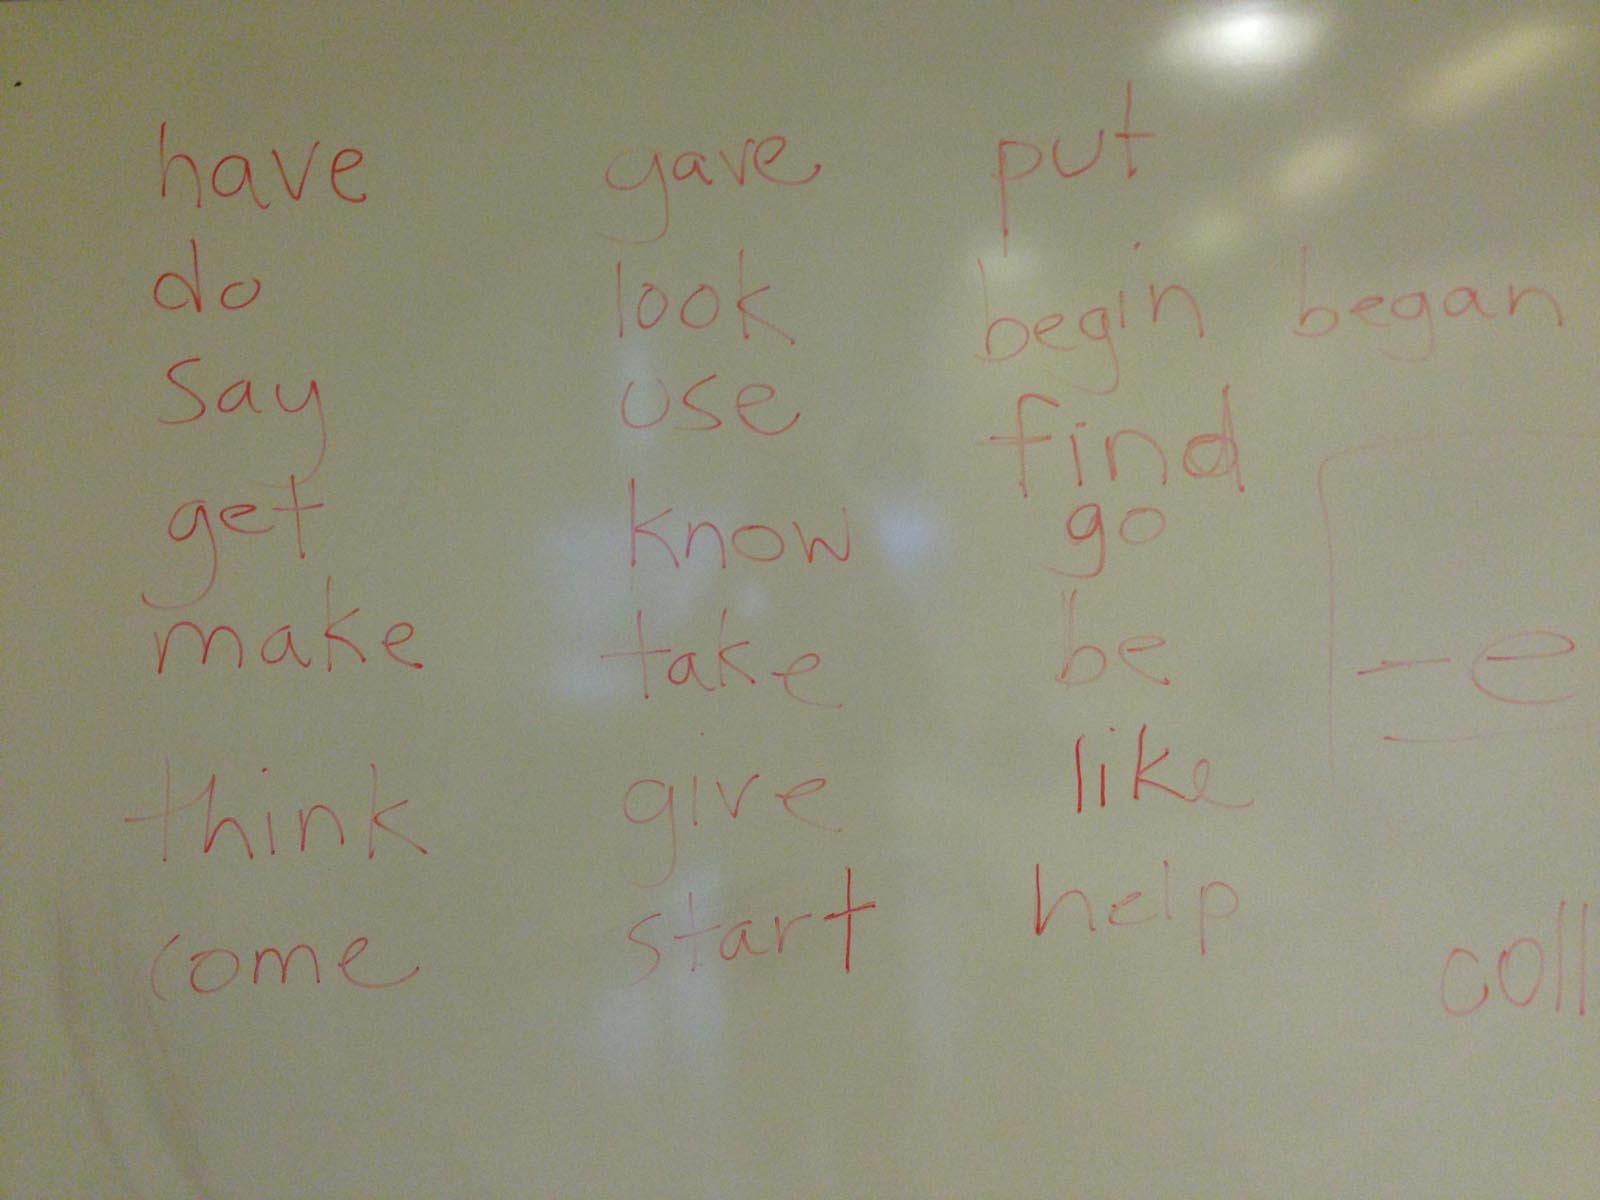 have
do
say
get
make
think
come
gave
look
use
know
take
give
start
put
begin began
find
go
be
like
help
-e
coll